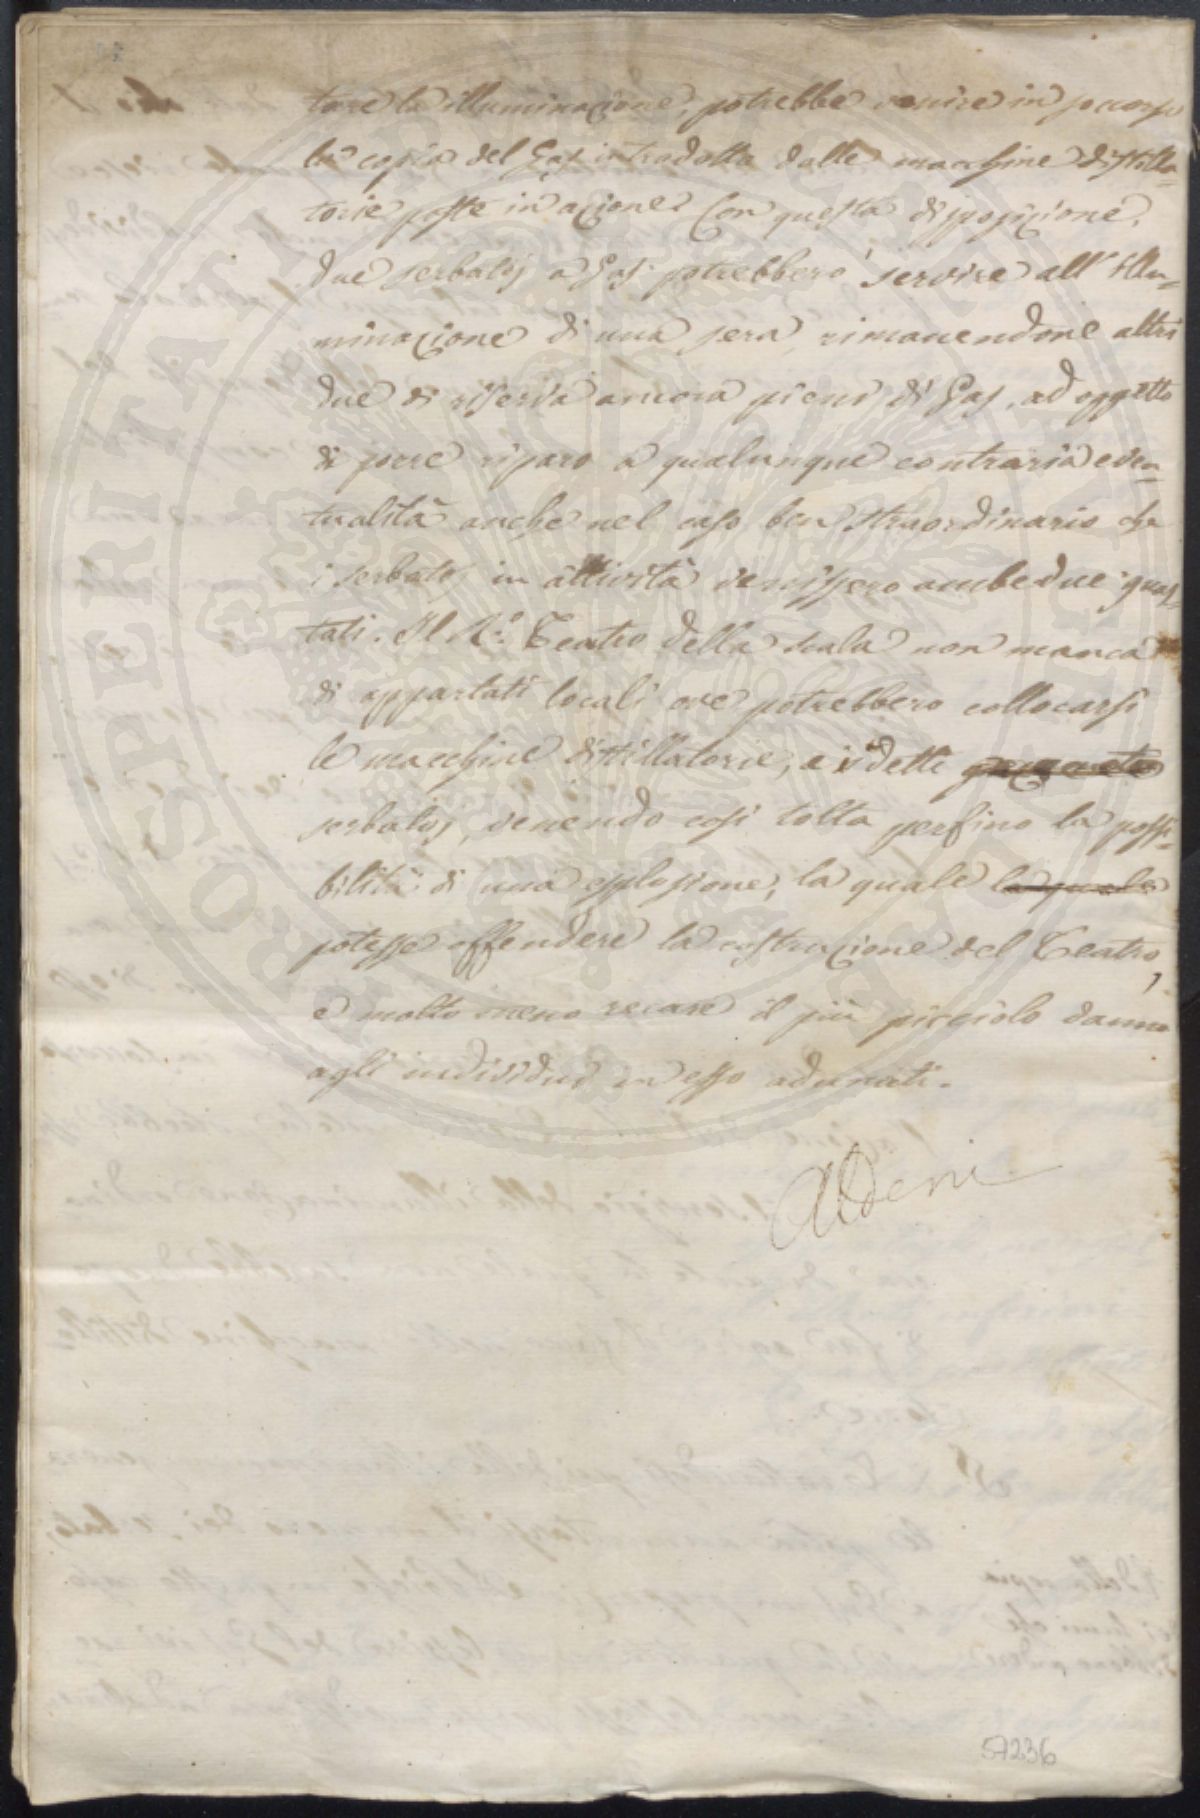 tare la illuminazione, potrebbe venire in soccorso
la copia del Gas introdotta dalle macchine distilla=
torie poste in azione. Con questa disposizione,
due serbatoj a Gas potrebbero servire all'illu=
minazione di una sera, rimanendone altri
due di riserva ancora pieni di Gas, ad oggetto
di porre riparo a qualunque contraria even=
tualità anche nel caso ben straordinario che
i serbatoj in attività venissero ambedue guas=
tati. Il R.º Teatro della scala non manca
di appartati locali ove potrebbero collocarsi
le macchine distillatorie, e i detti
serbatoj, venendo così tolta perfino la possi=
bilità di una esplosione, la quale la quale
potesse offendere la costruzione del Teatro,
e molto meno recare il più picciolo danno
agli individui in esso adunati.
Aldini
57236
PROSPERITATI